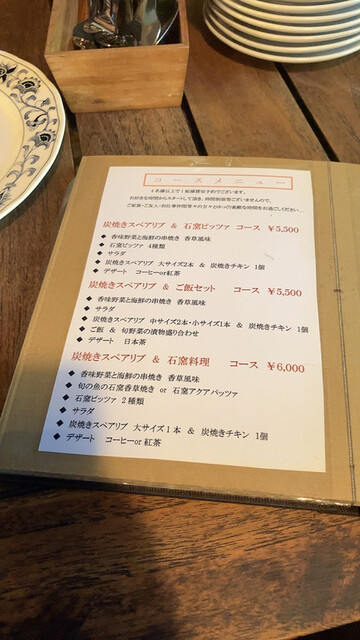 コースメニュー
4名様以上で1組様貸切予約でございます。
お好きな時間からスタートして頂き、時間制限等ございませんので、
ご家族・ご友人・お仕事仲間等々の方々とゆっくり素敵な時間をお過ごしください。
炭焼きスペアリブ & 石窯ピッツァ コース ￥5,500
◆ 香味野菜と海鮮の串焼き 香草風味
◆ 石窯ピッツァ 4種類
◆ サラダ
◆ 炭焼きスペアリブ 大サイズ2本 & 炭焼きチキン 1個
◆ デザート コーヒーor紅茶
炭焼きスペアリブ & ご飯セット コース ￥5,500
◆ 香味野菜と海鮮の串焼き 香草風味
◆ サラダ
◆ 炭焼きスペアリブ 中サイズ2本・小サイズ1本 & 炭焼きチキン 1個
◆ ご飯 & 旬野菜の漬物盛り合わせ
◆ デザート 日本茶
炭焼きスペアリブ & 石窯料理 コース ￥6,000
◆ 香味野菜と海鮮の串焼き 香草風味
◆ 旬の魚の石窯香草焼き or 石窯アクアパッツァ
◆ 石窯ピッツァ 2種類
◆ サラダ
◆ 炭焼きスペアリブ 大サイズ1本 & 炭焼きチキン 1個
◆ デザート コーヒーor紅茶